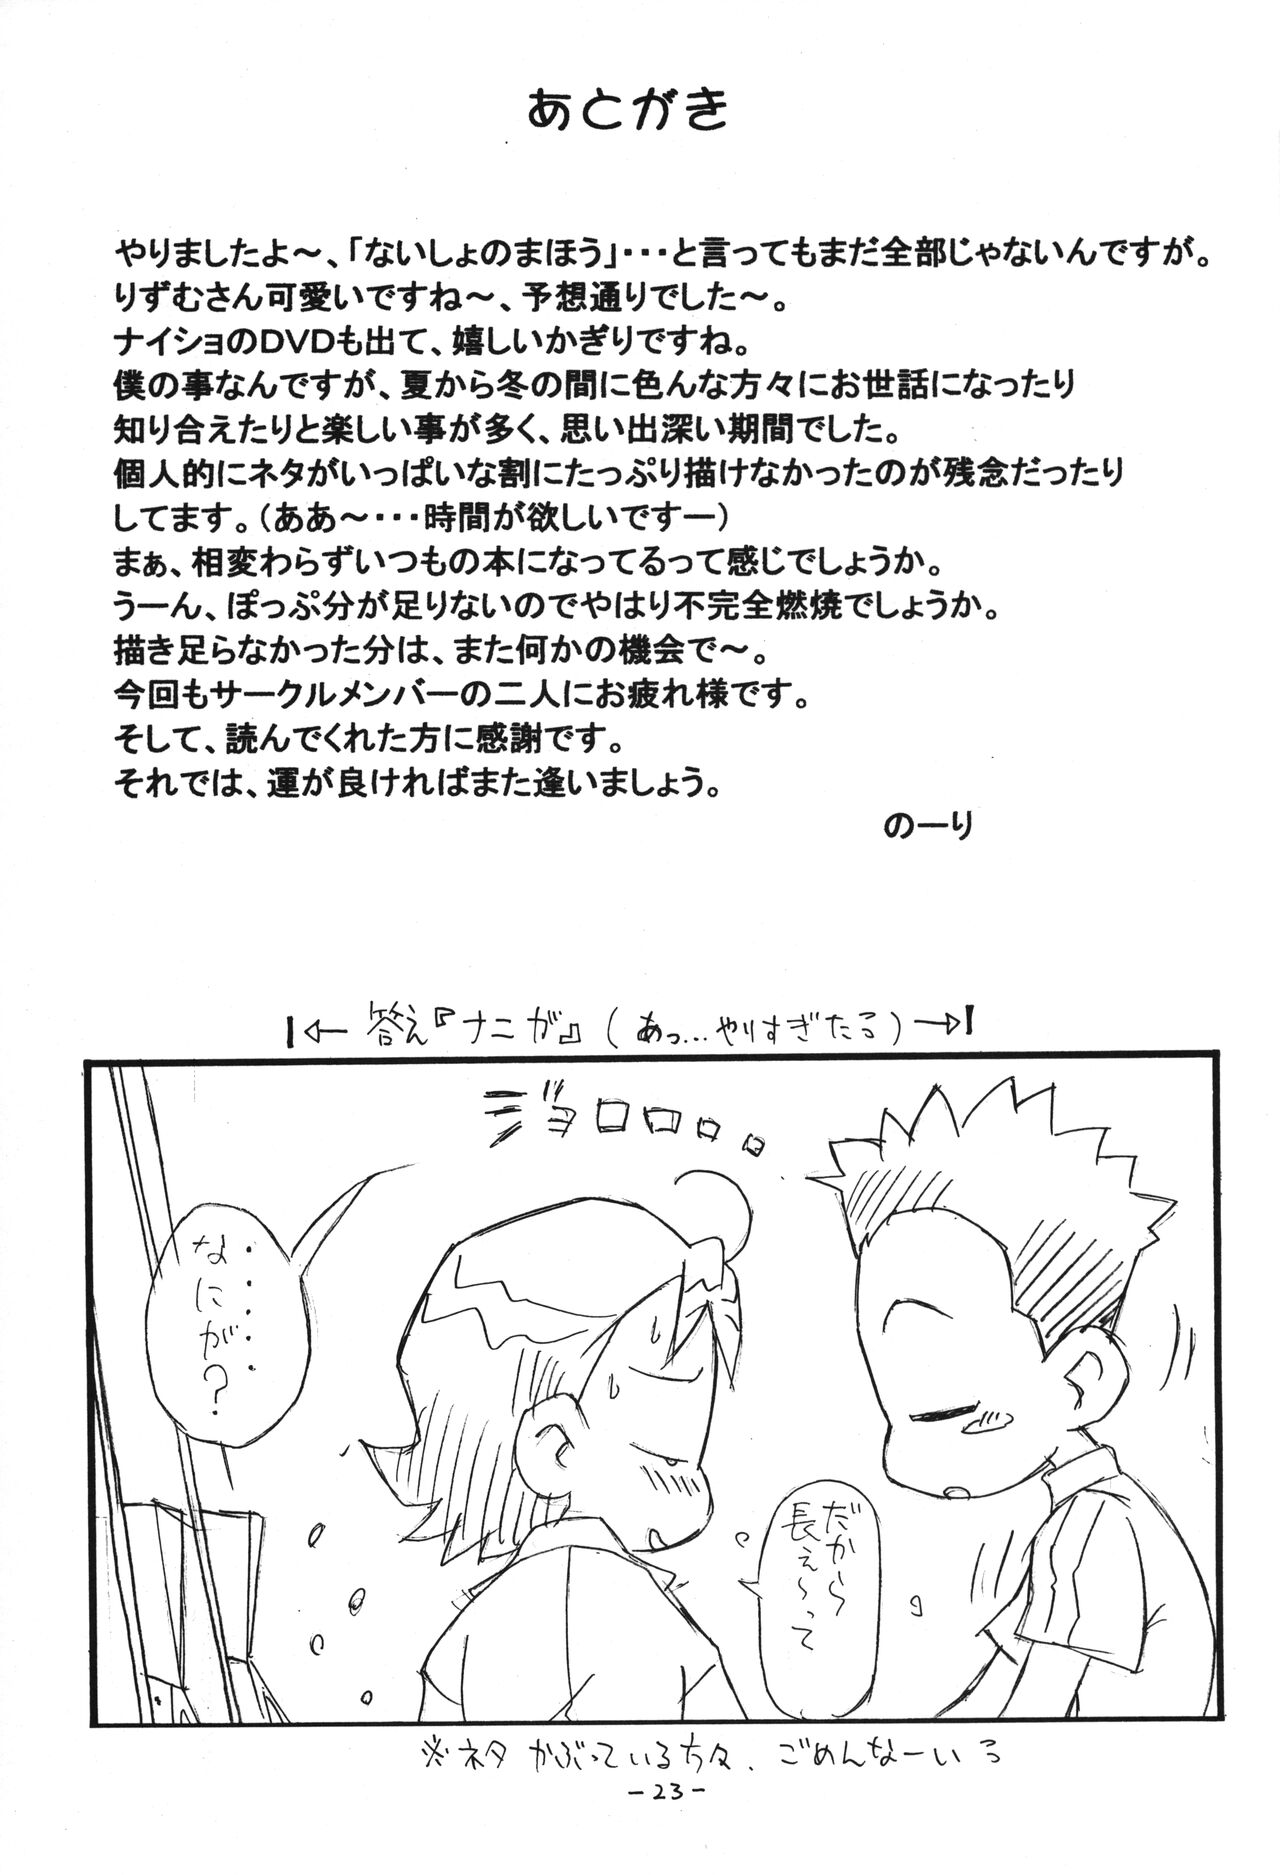 あとがき
やりましたよ～、「ないしょのまほう」・・・と言ってもまだ全部じゃないんですが。
りずむさん可愛いですね～、予想通りでした～。
ナイショのDVDも出て、嬉しいかぎりですね。
僕の事なんですが、夏から冬の間に色んな方々にお世話になったり
知り合えたりと楽しい事が多く、思い出深い期間でした。
個人的にネタがいっぱいな割にたっぷり描けなかったのが残念だったり
してます。（ああ～・・・時間が欲しいですー）
まぁ、相変わらずいつもの本になってるって感じでしょうか。
うーん、ぽっぷ分が足りないのでやはり不完全燃焼でしょうか。
描き足らなかった分は、また何かの機会で～。
今回もサークルメンバーの二人にお疲れ様です。
そして、読んでくれた方に感謝です。
それでは、運が良ければまた逢いましょう。
のーり
←答え『ナニガ』（あっ…やりすぎたろ）→
ジョロロロ。。
・・・・・
なにが？
だから
長ぇ～って
※ネタかぶっている方々、ごめんなーいろ
-23-